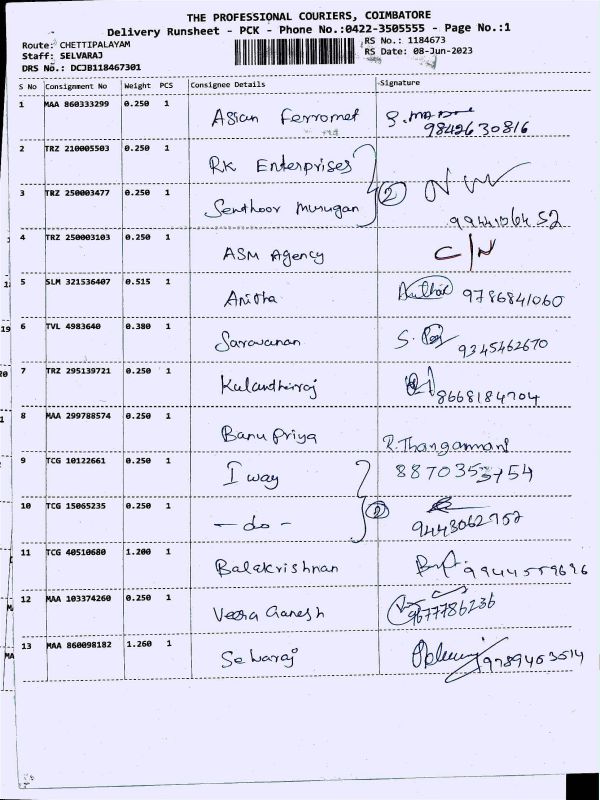 THE PROFESSIONAL COURIERS, COIMBATORE
Delivery Runsheet - PCK - Phone No.:0422-3505555 - Page No.:1
Route: CHETTIPALAYAM RS No.: 1184673
Staff: SELVARAJ RS Date: 08-Jun-2023
DRS No.: DCJB118467301
S No Consignment No Weight PCS Consignee Details Signature
1 MAA 860333299 0.250 1 Asian Ferromet
9842630816
2 TRZ 210005503 0.250 1 RK Enterprises
3 TRZ 250003477 0.250 1 Senthoor Murugan 2
4 TRZ 250003103 0.250 1 ASM Agency C/N
5 SLM 321536407 0.515 1 Anitha 9786841060
6 TVL 4983640 0.380 1 Saravanan S. 9345462670
7 TRZ 295139721 0.250 1 Kulanthiraj 8668184704
8 MAA 299788574 0.250 1 Banu Priya R. Thangammani
9 TCG 10122661 0.250 1 I way
10 TCG 15065235 0.250 1 - do - 2 9443062752
11 TCG 40510680 1.200 1 Balakrishnan 9944559696
12 MAA 103374260 0.250 1 Veera Ganesh 9677786236
13 MAA 860098182 1.260 1 Selvaraj 9789453514